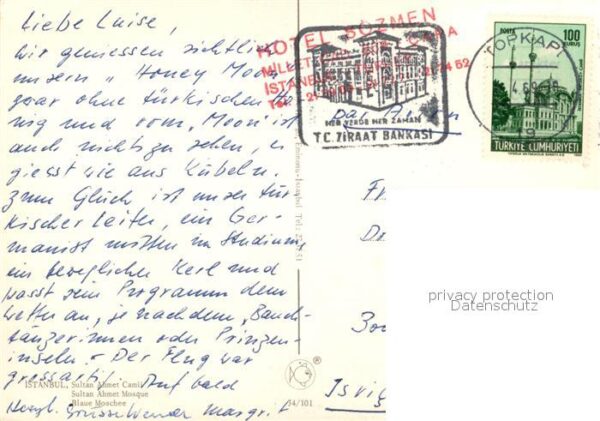 Liebe Luise,
wir geniessen sichtlich
unsern "Honey Moon"
zwar ohne türkischen Ho-
nig und vom "Moon" ist
auch nichts zu sehen, es
giesst wie aus Kübeln.
Zum Glück ist unser tür-
kischer Leiter, ein Ger-
manist mitten im Studium,
ein beweglicher Kerl und
passt sein Programm dem
Wetter an, je nachdem, Bauch-
tänzerinnen oder Prinzen-
inseln. - Der Flug war
grossartig. Auf bald
Herzl. Grüsse Werner Margrit
ISTANBUL, Sultan Ahmet Camii
Sultan Ahmet Mosque
Blaue Moschee
34/101
HOTEL SÖZMEN
MILLET
ISTANBUL
HER YERDE HER ZAMAN
T.C. ZİRAAT BANKASI
TOPKAPI
POSTA
100
KURUŞ
TÜRKİYE CUMHURİYETİ
Par
Fr
Do
Zo
privacy protection
Datenschutz